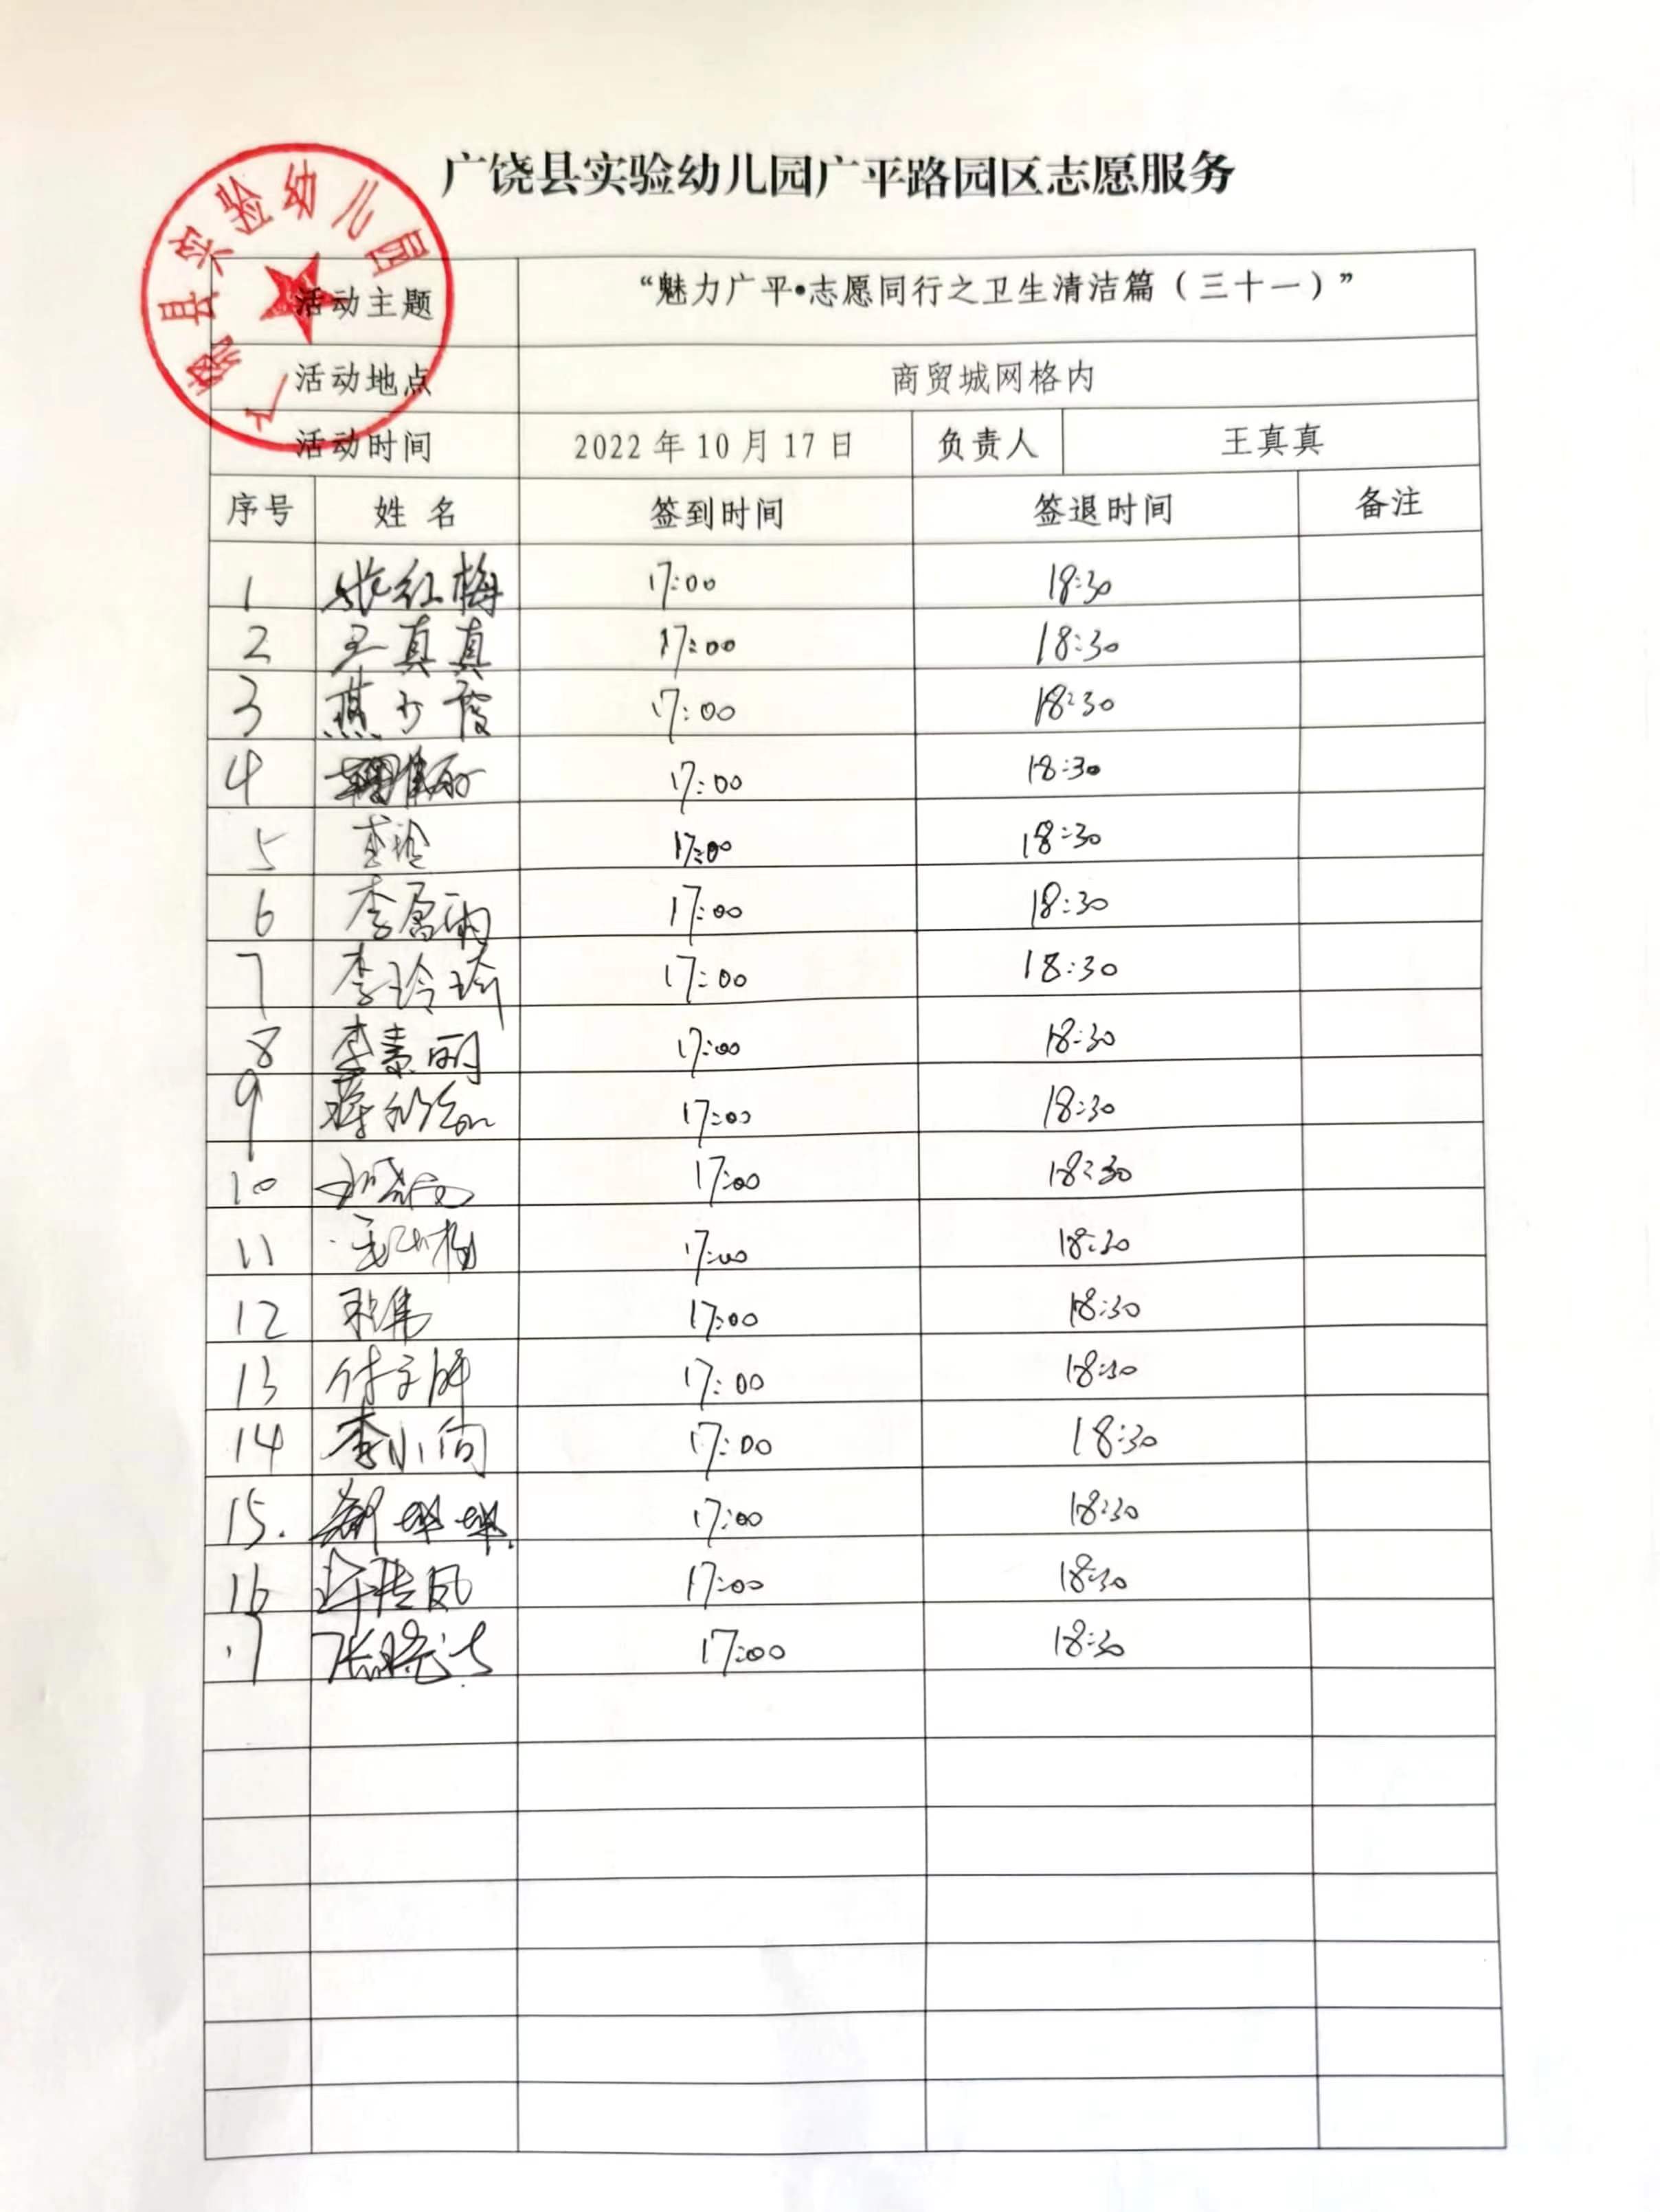 广饶县实验幼儿园广平路园区志愿服务
广饶县实验幼儿园
活动主题 “魅力广平•志愿同行之卫生清洁篇（三十一）”
活动地点 商贸城网格内
活动时间 2022年10月17日 负责人 王真真
序号 姓名 签到时间 签退时间 备注
1 张红梅 17:00 18:30
2 王真真 17:00 18:30
3 燕少霞 17:00 18:30
4 17:00 18:30
5 李玲 17:00 18:30
6 李 17:00 18:30
7 李玲琦 17:00 18:30
8 李素丽 17:00 18:30
9 蒋 17:00 18:30
10 17:00 18:30
11 17:00 18:30
12 17:00 18:30
13 付子 17:00 18:30
14 李小向 17:00 18:30
15. 17:00 18:30
16 许桂凤 17:00 18:30
17 张晓 17:00 18:30